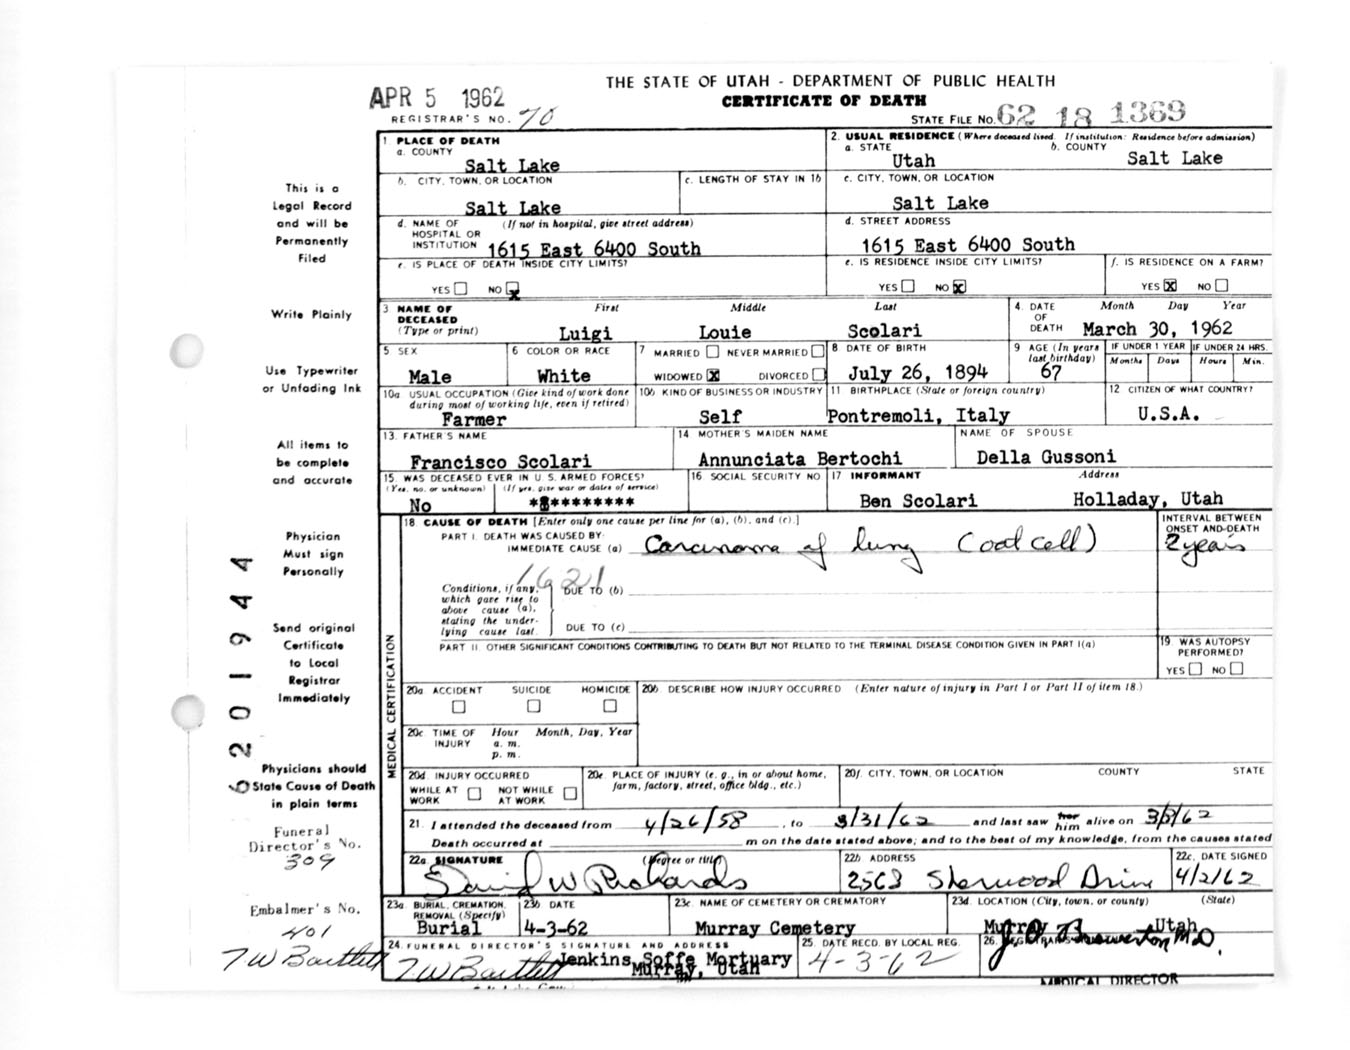 THE STATE OF UTAH - DEPARTMENT OF PUBLIC HEALTH
CERTIFICATE OF DEATH
APR 5 1962
REGISTRAR'S NO. 70
STATE FILE NO. 62 18 1369
This is a
Legal Record
and will be
Permanently
Filed
Write Plainly
Use Typewriter
or Unfading Ink
All items to
be complete
and accurate
Physician
Must sign
Personally
Send original
Certificate
to Local
Registrar
Immediately
Physicians should
State Cause of Death
in plain terms
Funeral
Director's No.
309
Embalmer's No.
401
T W Bartlett
6201944
1. PLACE OF DEATH
a. COUNTY
Salt Lake
2. USUAL RESIDENCE (Where deceased lived. If institution: Residence before admission)
a. STATE b. COUNTY
Utah Salt Lake
b. CITY, TOWN, OR LOCATION
Salt Lake
c. LENGTH OF STAY IN 1b
c. CITY, TOWN, OR LOCATION
Salt Lake
d. NAME OF (If not in hospital, give street address)
HOSPITAL OR
INSTITUTION 1615 East 6400 South
d. STREET ADDRESS
1615 East 6400 South
e. IS PLACE OF DEATH INSIDE CITY LIMITS?
YES NO X
e. IS RESIDENCE INSIDE CITY LIMITS?
YES NO X
f. IS RESIDENCE ON A FARM?
YES X NO
3 NAME OF DECEASED
(Type or print)
First Middle Last
Luigi Louie Scolari
4. DATE OF DEATH
Month Day Year
March 30, 1962
5 SEX
Male
6 COLOR OR RACE
White
7 MARRIED NEVER MARRIED
WIDOWED X DIVORCED
8 DATE OF BIRTH
July 26, 1894
9 AGE (In years last birthday)
67
IF UNDER 1 YEAR
Months Days
IF UNDER 24 HRS.
Hours Min.
10a USUAL OCCUPATION (Give kind of work done
during most of working life, even if retired)
Farmer
10b KIND OF BUSINESS OR INDUSTRY
Self
11 BIRTHPLACE (State or foreign country)
Pontremoli, Italy
12 CITIZEN OF WHAT COUNTRY?
U.S.A.
13. FATHER'S NAME
Francisco Scolari
14 MOTHER'S MAIDEN NAME
Annunciata Bertochi
NAME OF SPOUSE
Della Gussoni
15. WAS DECEASED EVER IN U.S. ARMED FORCES?
(Yes, no, or unknown) (If yes, give war or dates of service)
No **********
16 SOCIAL SECURITY NO
17 INFORMANT Address
Ben Scolari Holladay, Utah
MEDICAL CERTIFICATION
18. CAUSE OF DEATH [Enter only one cause per line for (a), (b), and (c).]
PART I. DEATH WAS CAUSED BY:
IMMEDIATE CAUSE (a) Carcinoma of lung (oat cell)
INTERVAL BETWEEN
ONSET AND DEATH
2 years
1621
Conditions, if any,
which gave rise to
above cause (a),
stating the under-
lying cause last.
DUE TO (b)
DUE TO (c)
PART II OTHER SIGNIFICANT CONDITIONS CONTRIBUTING TO DEATH BUT NOT RELATED TO THE TERMINAL DISEASE CONDITION GIVEN IN PART I(a)
19 WAS AUTOPSY
PERFORMED?
YES NO
20a ACCIDENT SUICIDE HOMICIDE
20b DESCRIBE HOW INJURY OCCURRED (Enter nature of injury in Part I or Part II of item 18.)
20c TIME OF INJURY
Hour Month, Day, Year
a. m.
p. m.
20d. INJURY OCCURRED
WHILE AT WORK NOT WHILE AT WORK
20e. PLACE OF INJURY (e. g., in or about home,
farm, factory, street, office bldg., etc.)
20f. CITY, TOWN, OR LOCATION COUNTY STATE
21. I attended the deceased from 4/26/58, to 3/31/62 and last saw her him alive on 3/31/62
Death occurred at m on the date stated above; and to the best of my knowledge, from the causes stated
22a SIGNATURE (Degree or title)
David W Richards
22b ADDRESS
2563 Sherwood Drive
22c. DATE SIGNED
4/2/62
23a. BURIAL, CREMATION,
REMOVAL (Specify)
Burial
23b DATE
4-3-62
23c NAME OF CEMETERY OR CREMATORY
Murray Cemetery
23d. LOCATION (City, town, or county) (State)
Murray Utah
24. FUNERAL DIRECTOR'S SIGNATURE AND ADDRESS
T W Bartlett Jenkins Soffe Mortuary
Murray, Utah
25. DATE RECD. BY LOCAL REG.
4-3-62
26. REGISTRAR'S
M.D.
MEDICAL DIRECTOR